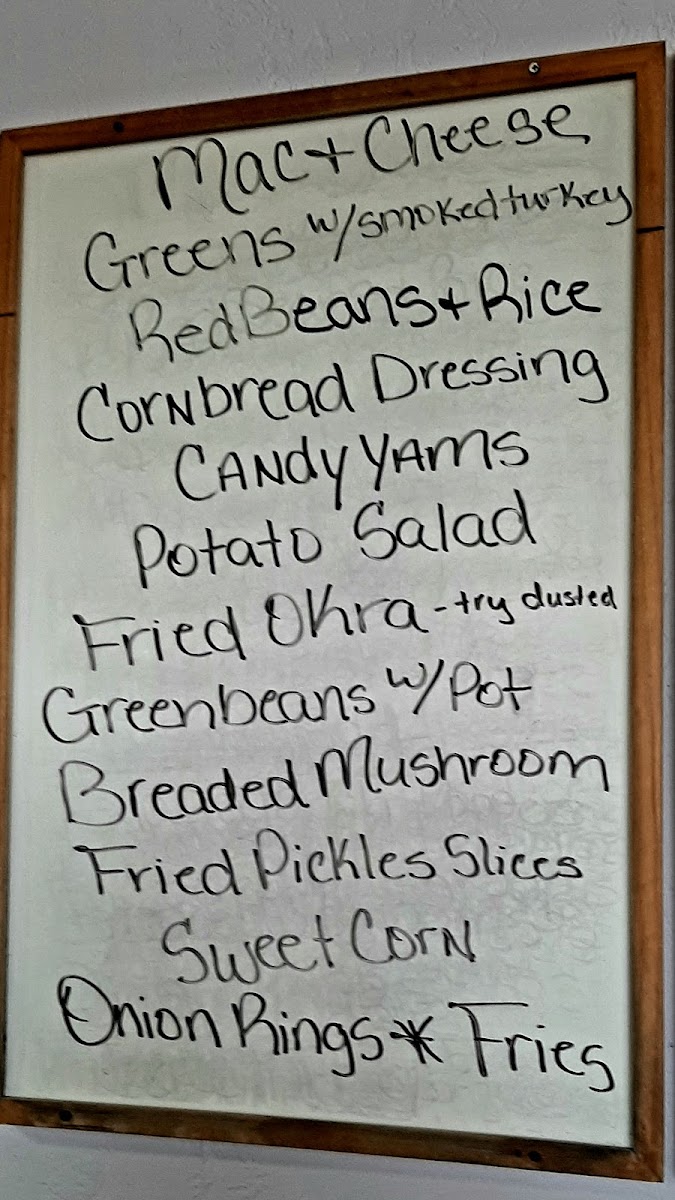 Mac + Cheese
Greens w/smoked turkey
Red Beans + Rice
Cornbread Dressing
Candy Yams
Potato Salad
Fried Okra - try dusted
Greenbeans w/ Pot
Breaded Mushroom
Fried Pickles Slices
Sweet Corn
Onion Rings * Fries